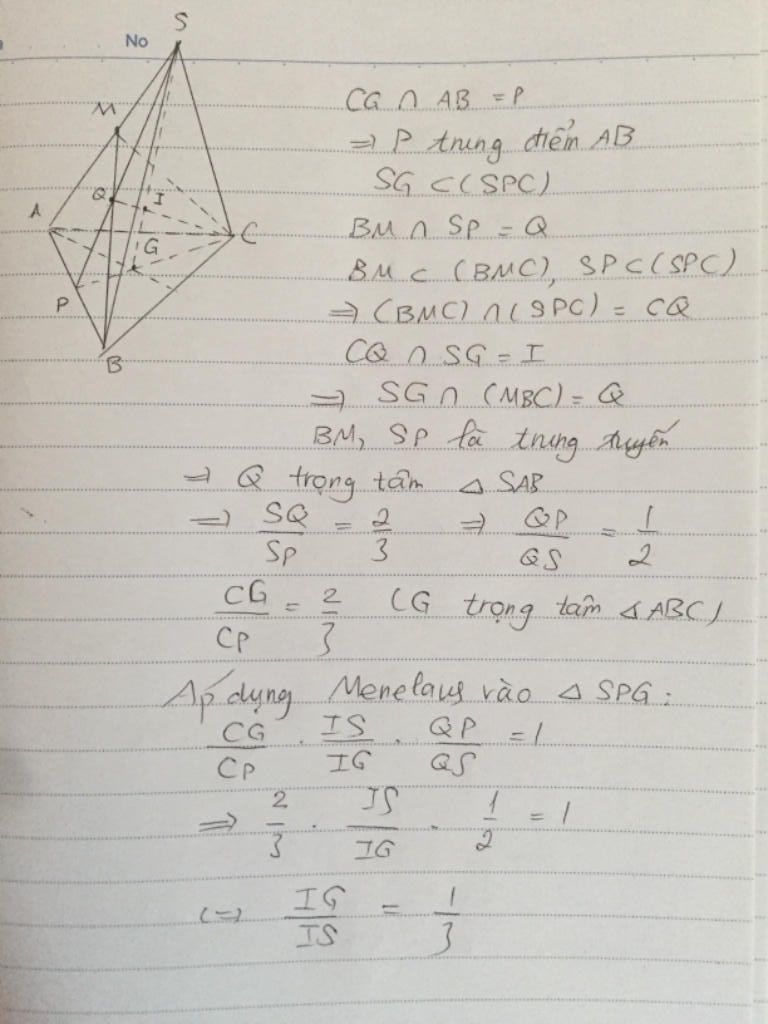 No
S
M
Q
I
A
C
G
P
B
CG ∩ AB = P
⇒ P trung điểm AB
SG ⊂ (SPC)
BM ∩ SP = Q
BM ⊂ (BMC), SP ⊂ (SPC)
⇒ (BMC) ∩ (SPC) = CQ
CQ ∩ SG = I
⇒ SG ∩ (MBC) = Q
BM, SP là trung tuyến
⇒ Q trọng tâm △ SAB
⇒ SQ/SP = 2/3 ⇒ QP/QS = 1/2
CG/CP = 2/3 (G trọng tâm △ABC)
Áp dụng Menelaus vào △ SPG:
CG/CP . IS/IG . QP/QS = 1
⇒ 2/3 . IS/IG . 1/2 = 1
(=) IG/IS = 1/3